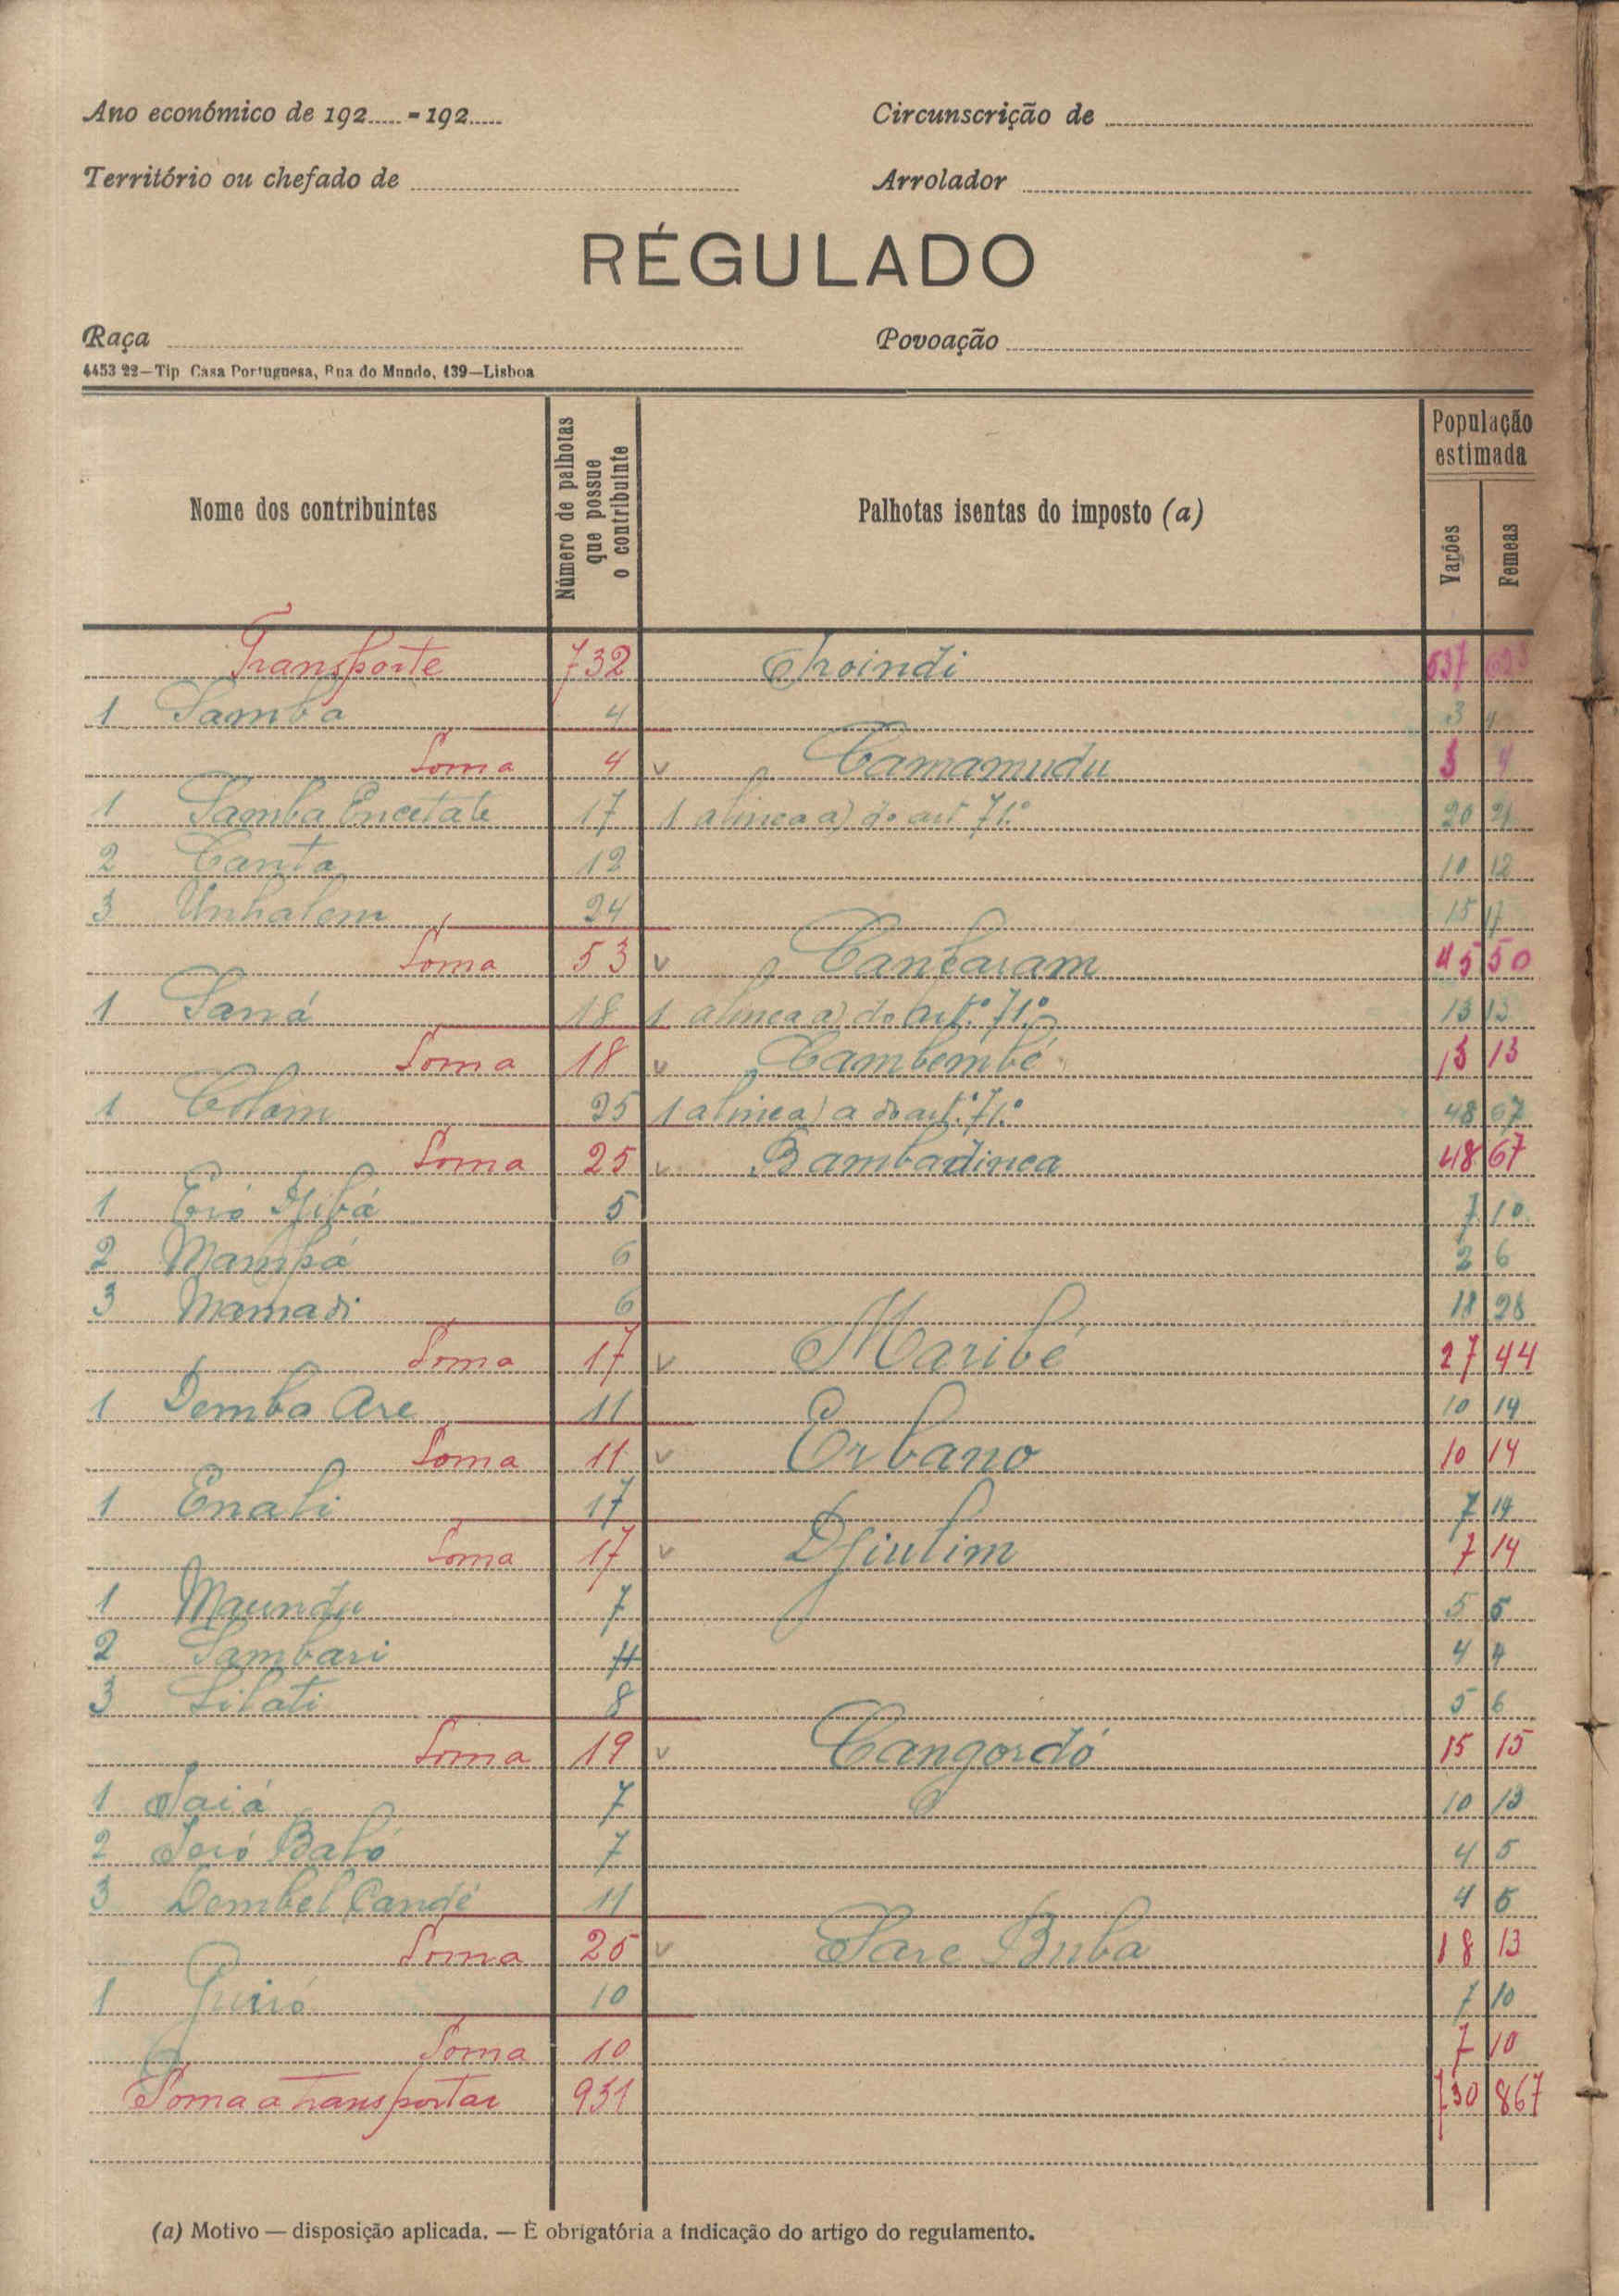 Ano económico de 192..... - 192.....
Circunscrição de
Território ou chefado de
Arrolador
RÉGULADO
Raça
Povoação
4453 22—Tip Casa Portuguesa, Rua do Mundo, 139—Lisboa
Nome dos contribuintes
Número de palhotas que possue o contribuinte
Palhotas isentas do imposto (a)
População estimada
Varões
Femeas
Transporte 732 Choindi 537
1 Samba 4 3 4
Soma 4 v Camamudu 3 4
1 Samba Encetate 17 1 alinea a) do art 71.º 20 21
2 Canta 12 10 12
3 Unhalem 24 15 17
Soma 53 v Cantaram 45 50
1 Saná 18 1 alinea a) do art.º 71.º 13 13
Soma 18 v Cambembé 13 13
1 Colom 25 1 alinea) a do art.º 71.º 48 67
Soma 25 v Bambadinca 48 67
1 Djibá 5 7 10
2 Mampá 6 2 6
3 Mamadi 6 18 28
Soma 17 v Maribé 27 44
1 Demba Are 11 10 14
Soma 11 v Erbano 10 14
1 Enali 17 7 14
Soma 17 v Djiulim 7 14
1 Maundu 7 5 5
2 Sambari 4 4 4
3 Silati 8 5 6
Soma 19 v Cangordó 15 15
1 Saiá 7 10 13
2 Soió Baló 7 4 5
3 Dembel Candé 11 4 5
Soma 25 v Sare Buba 18 13
1 Guiró 10 7 10
Soma 10 7 10
Soma a transportar 931 730 867
(a) Motivo — disposição aplicada. — É obrigatória a indicação do artigo do regulamento.